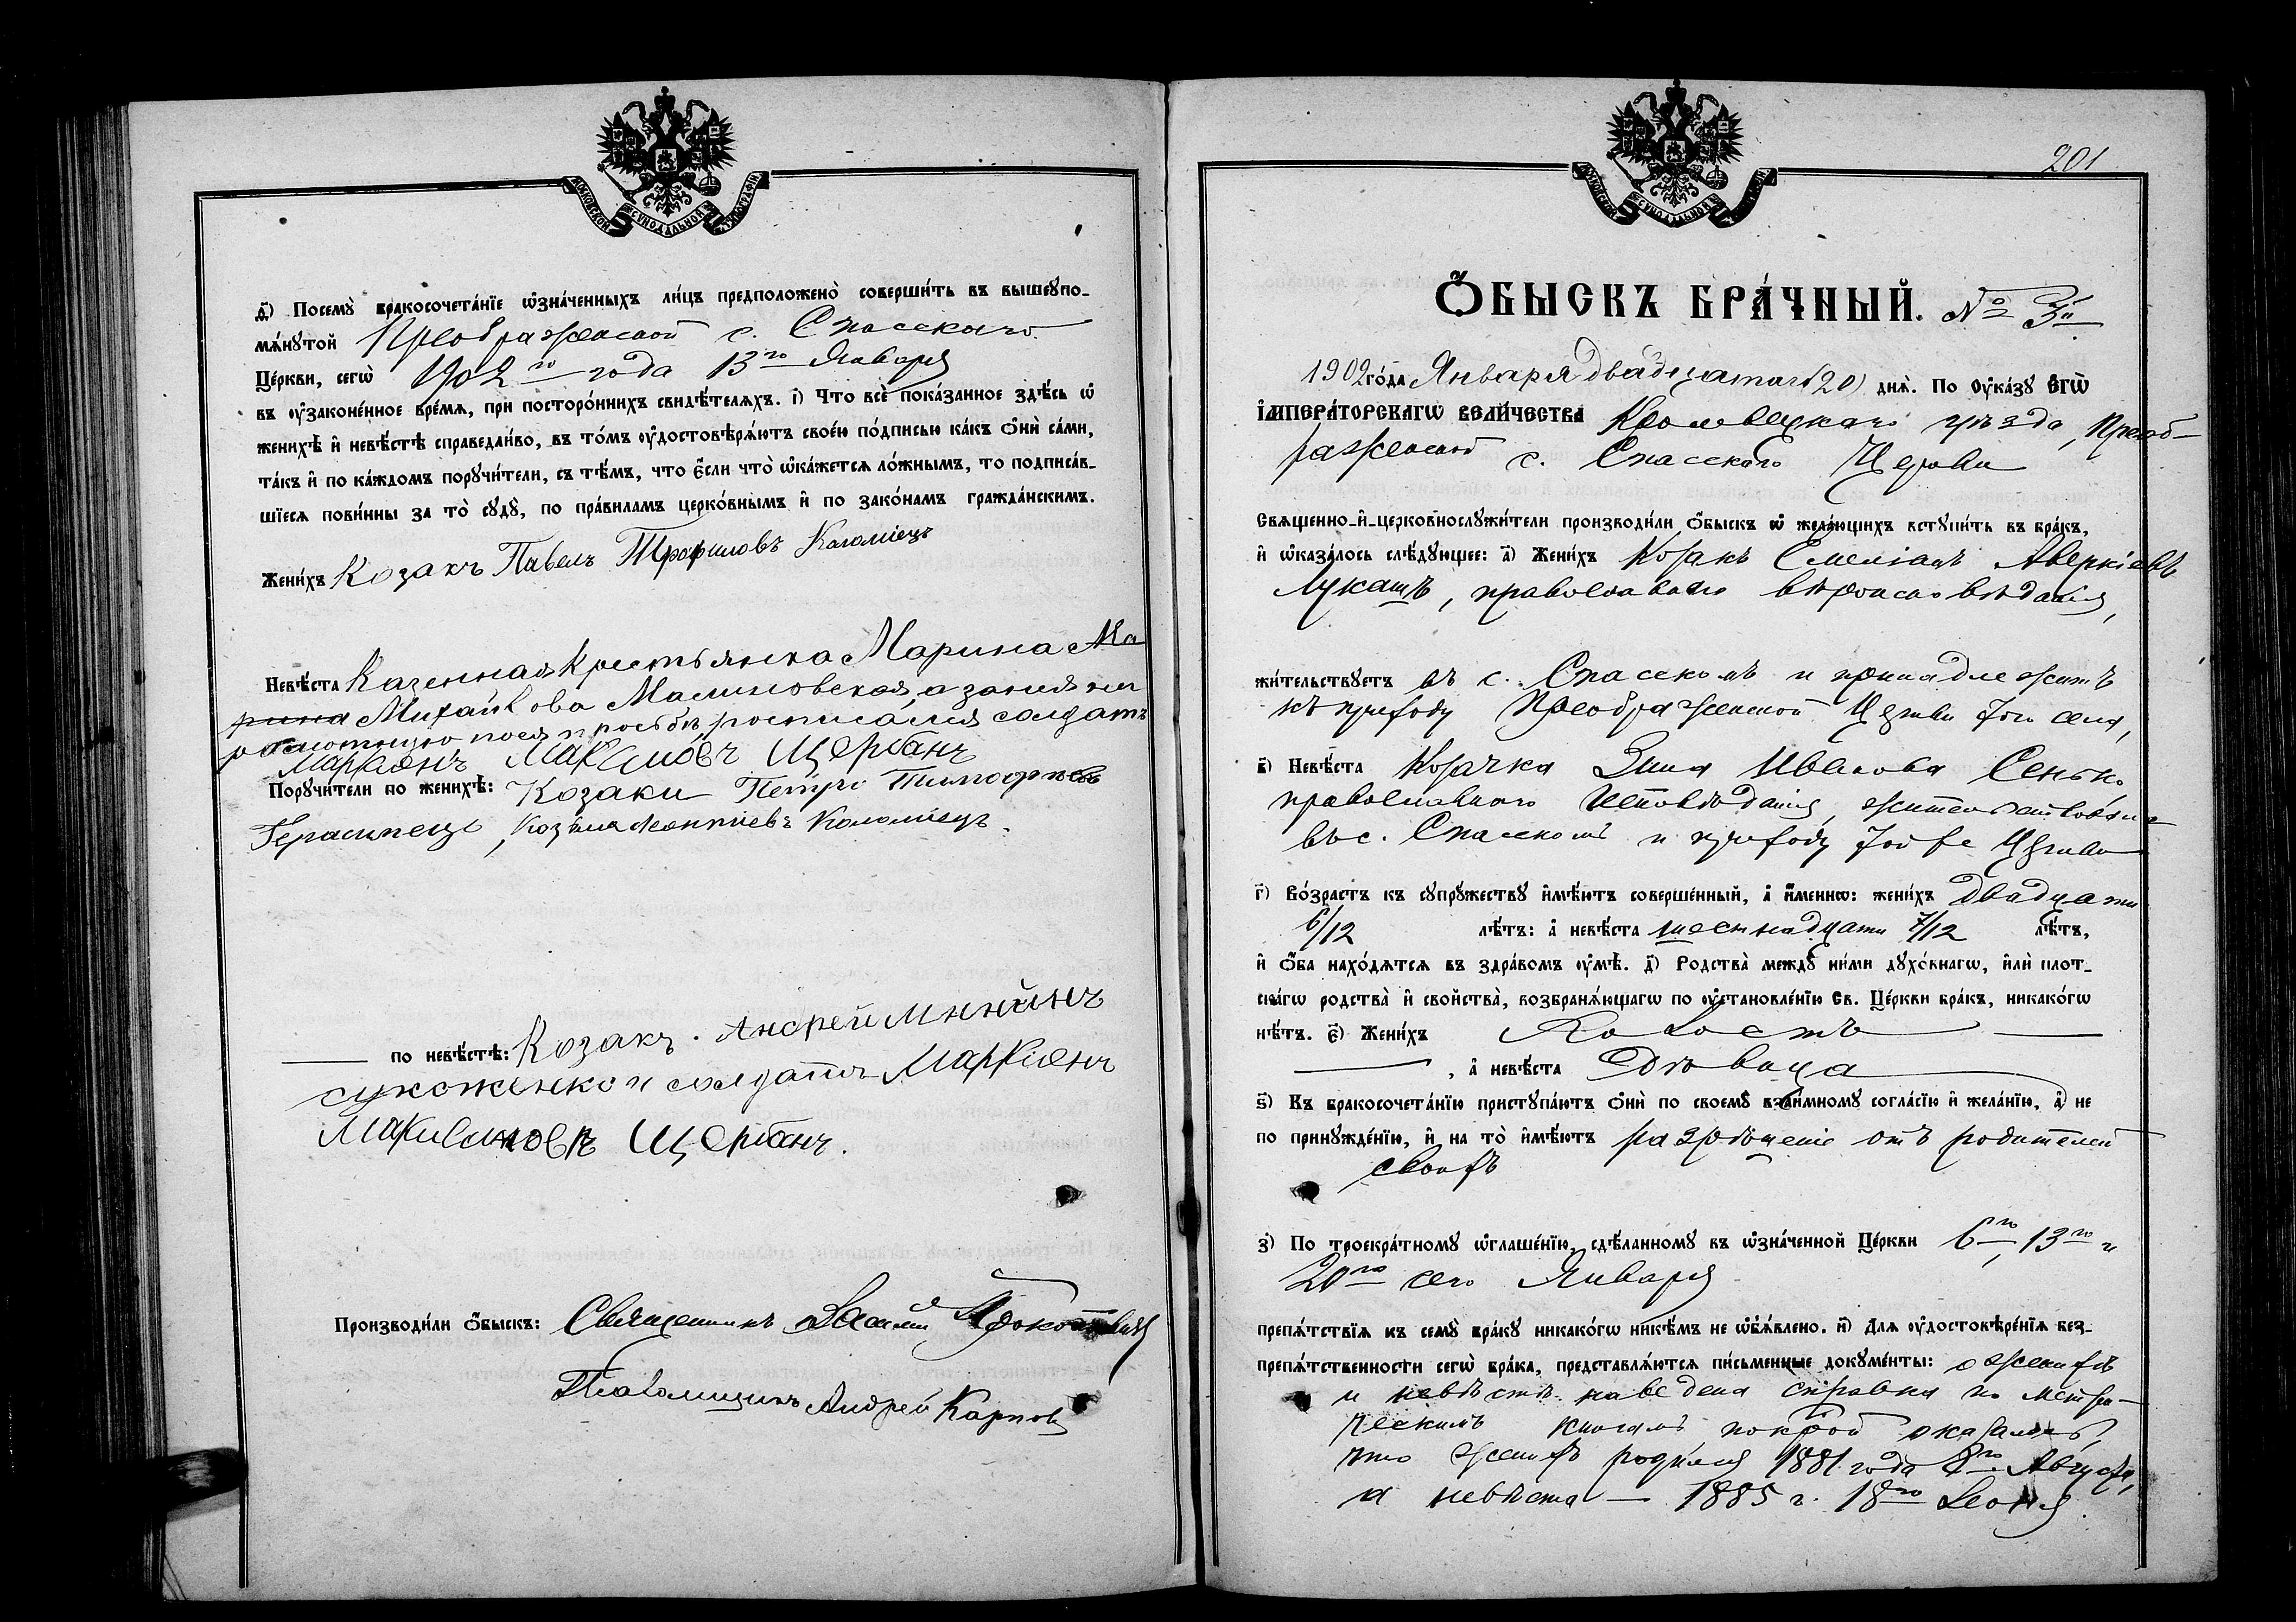 МОСКОВСКОЙ СѴНОДАЛЬНОЙ ТИПОГРАФІИ
д҃і) Посемꙋ̀ бракосочета́нїе ѡ҆зна́ченныхъ ли́цъ предположено̀ соверши́ть въ вышеꙋпо-
мѧ́нꙋтой Преображенской с. Спасскаго
Це́ркви, сегѡ̀ 1902го года 13го Января
въ ᲂу҆зако́ненное вре́мѧ, при посторо́ннихъ свидѣ́телѧхъ. і҃) Что̀ всѐ пока́занное здѣ́сь ѡ҆
женихѣ̀ и҆ невѣ́стѣ справедли́во, въ то́мъ ᲂу҆достовѣрѧ́ютъ свое́ю по́дписью ка́къ ѻ҆нѝ са́ми,
та́къ и҆ по ка́ждомъ порꙋчи́тели, съ тѣ́мъ, что є҆́сли что̀ ѡ҆ка́жетсѧ ло́жнымъ, то подписа́в-
шїесѧ пови́нны за то̀ сꙋдꙋ̀, по пра́виламъ церко́внымъ и҆ по зако́намъ гражда́нскимъ.
Жени́хъ Козакъ Павелъ Трофимовъ Коломіецъ
Невѣ́ста Казенная крестьянка Марина Ма
рина Михайлова Малиновская, а за нея не
грамотную по ея просьбѣ росписался солдатъ
Маркіянъ Максимовъ Щербанъ
Порꙋчи́тели по женихѣ̀: Козаки Петръ Тимофеевъ
Герасимецъ, Козьма Леонтиевъ Коломіецъ.
по невѣ́стѣ: Козакъ. Андрей Минаинъ
сукоженко и солдатъ Маркіянъ
Максимовъ Щербанъ.
Производи́ли ѻ҆́быскъ: Священникъ Василій
Псаломщикъ Андрей Карпов
МОСКОВСКОЙ СѴНОДАЛЬНОЙ ТИПОГРАФІИ
201
Ѻ҆́БЫСКЪ БРА́ЧНЫЙ. № 3й
1902 го́да Января двадцатаго (20) днѧ̀. По ᲂу҆ка́зꙋ Є҆ГѠ̀
І҆МПЕРА́ТОРСКАГѠ ВЕЛИ́ЧЕСТВА Кролевецкаго уѣзда, Преоб-
раженской с. Спасскаго Церкви
Свѧще́нно-и҆-церковнослꙋжи́тели производи́ли ѻ҆́быскъ ѡ҆ жела́ющихъ встꙋпи́ть въ бра́къ,
и҆ ѡ҆каза́лось слѣ́дꙋющее: а҃) Жени́хъ Козакъ Емеліанъ Аверкіевъ
Лукашъ, православнаго вѣроисповѣданія,
жи́тельствꙋетъ въ с. Спасскомъ и принадлежитъ
къ приходу Преображенской Церкви того села,
в҃) Невѣ́ста Козачка Зина Иванова Сенько
православнаго исповѣданія, жительствовала
въ с. Спасскомъ и приходу той же Церкви
г҃) Во́зрастъ къ сꙋпрꙋ́жествꙋ и҆мѣ́ютъ соверше́нный, а҆ и҆́менно: жени́хъ двадцати
6/12 лѣ́тъ: а҆ невѣ́ста шестнадцати 7/12 лѣ́тъ,
и҆ ѻ҆́ба нахо́дѧтсѧ въ здра́вомъ ᲂу҆мѣ̀. д҃) Родства̀ междꙋ̀ ни́ми дꙋхо́внагѡ, и҆лѝ плот-
ска́гѡ родства̀ и҆ сво́йства, возбранѧ́ющагѡ по ᲂу҆становле́нїю Св. Це́ркви бра́къ, никако́гѡ
нѣ́тъ. є҃) Жени́хъ Холостъ
, а҆ невѣ́ста Дѣвица
ѕ҃) Къ бракосочета́нїю пристꙋпа́ютъ ѻ҆нѝ по своемꙋ̀ взаи́мномꙋ согла́сїю и҆ жела́нїю, а҆ не
по принꙋжде́нїю, и҆ на то̀ и҆мѣ́ютъ разрѣшеніе отъ родителей
своихъ
з҃) По троекра́тномꙋ ѡ҆глаше́нїю, сдѣ́ланномꙋ въ ѡ҆зна́ченной Це́ркви 6го, 13го и
20го сего Января
препѧ́тствїѧ къ семꙋ̀ бра́кꙋ никако́гѡ никѣ́мъ не ѡ҆б̾ѧ́влено. и҃) Длѧ ᲂу҆достовѣре́нїѧ без-
препѧ́тственности сегѡ̀ бра́ка, представлѧ́ютсѧ пи́сьменные докꙋме́нты: о женихѣ
и невѣстѣ наведена справка по метри-
ческимъ книгамъ по крой оказалось,
что женихъ родился 1881 года 8го Августа,
а невѣста — 1885 г. 18го Іюня.